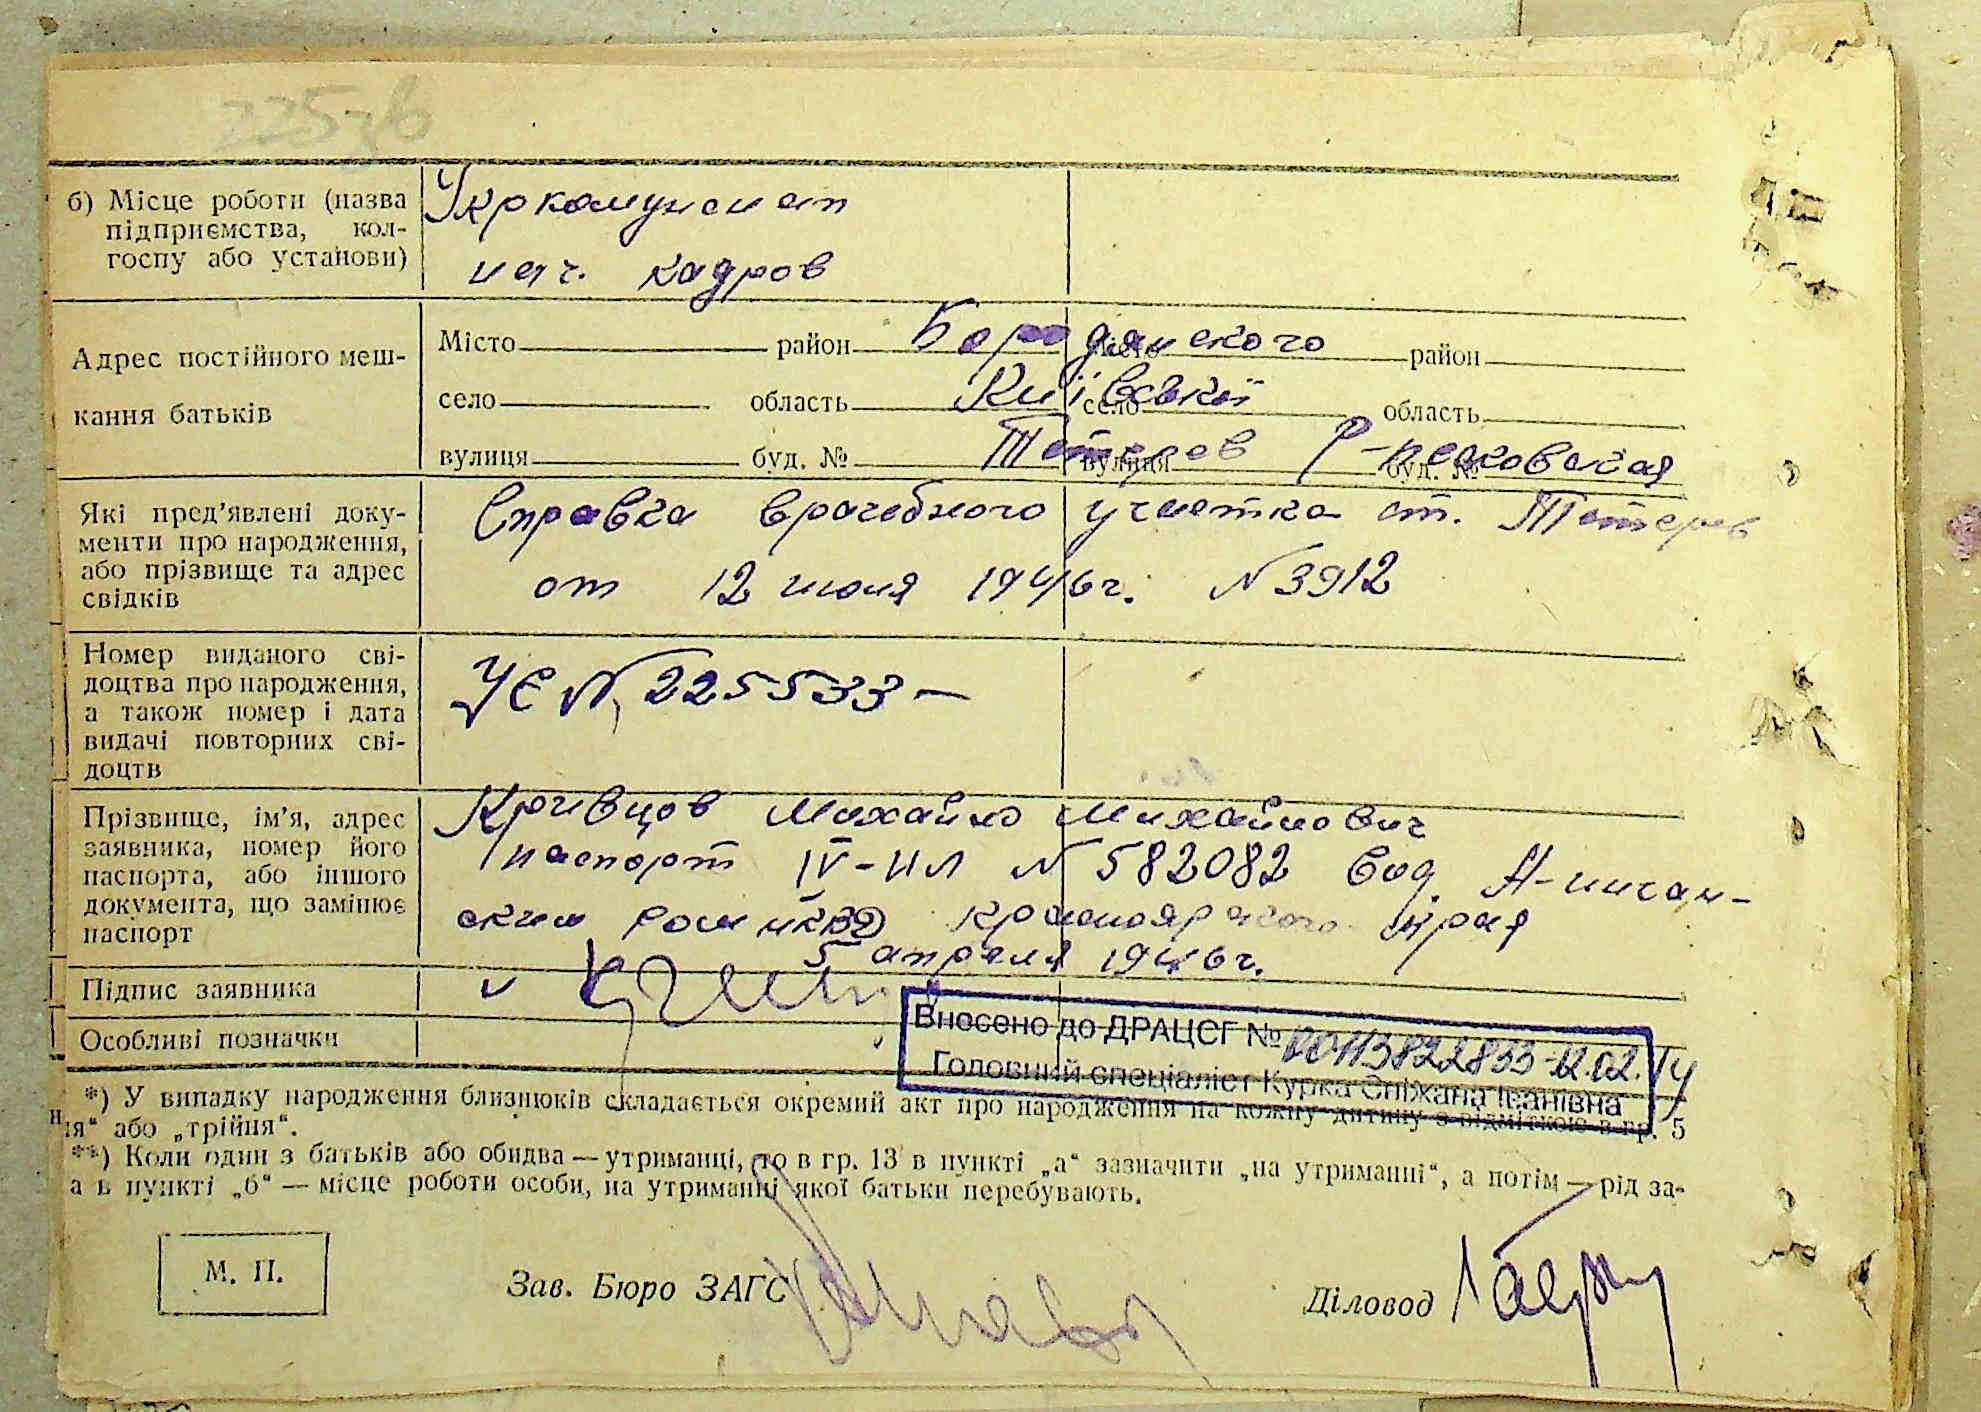 б) Місце роботи (назва
підприємства, кол-
госпу або установи)
нач. кадров
Адрес постійного меш-
кання батьків
Місто район Бородянского Місто район
село область Київської село область
вулиця буд. № Тетерев вулиця буд. №
Які пред'явлені доку-
менти про народження,
або прізвище та адрес
свідків
Справка врачебного участка ст. Тетерев
от 12 июля 1946 г. N 3912
Номер виданого сві-
доцтва про народження,
а також номер і дата
видачі повторних сві-
доцтв
УЄ № 225533 –
Прізвище, ім'я, адрес
заявника, номер його
паспорта, або іншого
документа, що замінює
паспорт
Кривцов Михайло Михайлович
паспорт IV- N 582082
НКВД Красноярского края
5 апреля 1946 г.
Підпис заявника
Особливі позначки
Внесено до ДРАЦСГ №
Головний спеціаліст Курка Сніжана Іванівна
*) У випадку народження близнюків складається окремий акт про народження на кожну дитину з відміткою в гр. 5
ня“ або „трійня“.
**) Коли один з батьків або обидва — утриманці, то в гр. 13 в пункті „а“ зазначити „на утриманні“, а потім — рід за-
а в пункті „б“ — місце роботи особи, на утриманні якої батьки перебувають.
М. П.
Зав. Бюро ЗАГС
Діловод